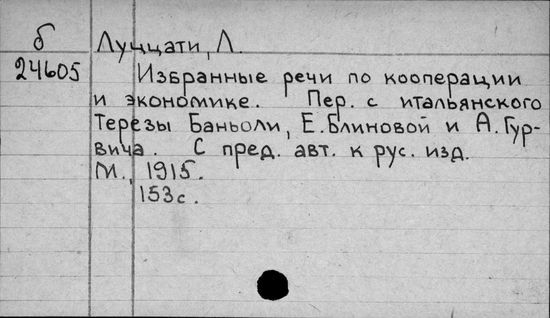 б
24605
Луццати, Л.
Избранные речи по кооперации
и экономике. Пер. с итальянского
Терезы Баньоли, Е.Блиновой и А.Гур-
вича. С пред. авт. к рус. изд.
М., 1915.
153с.